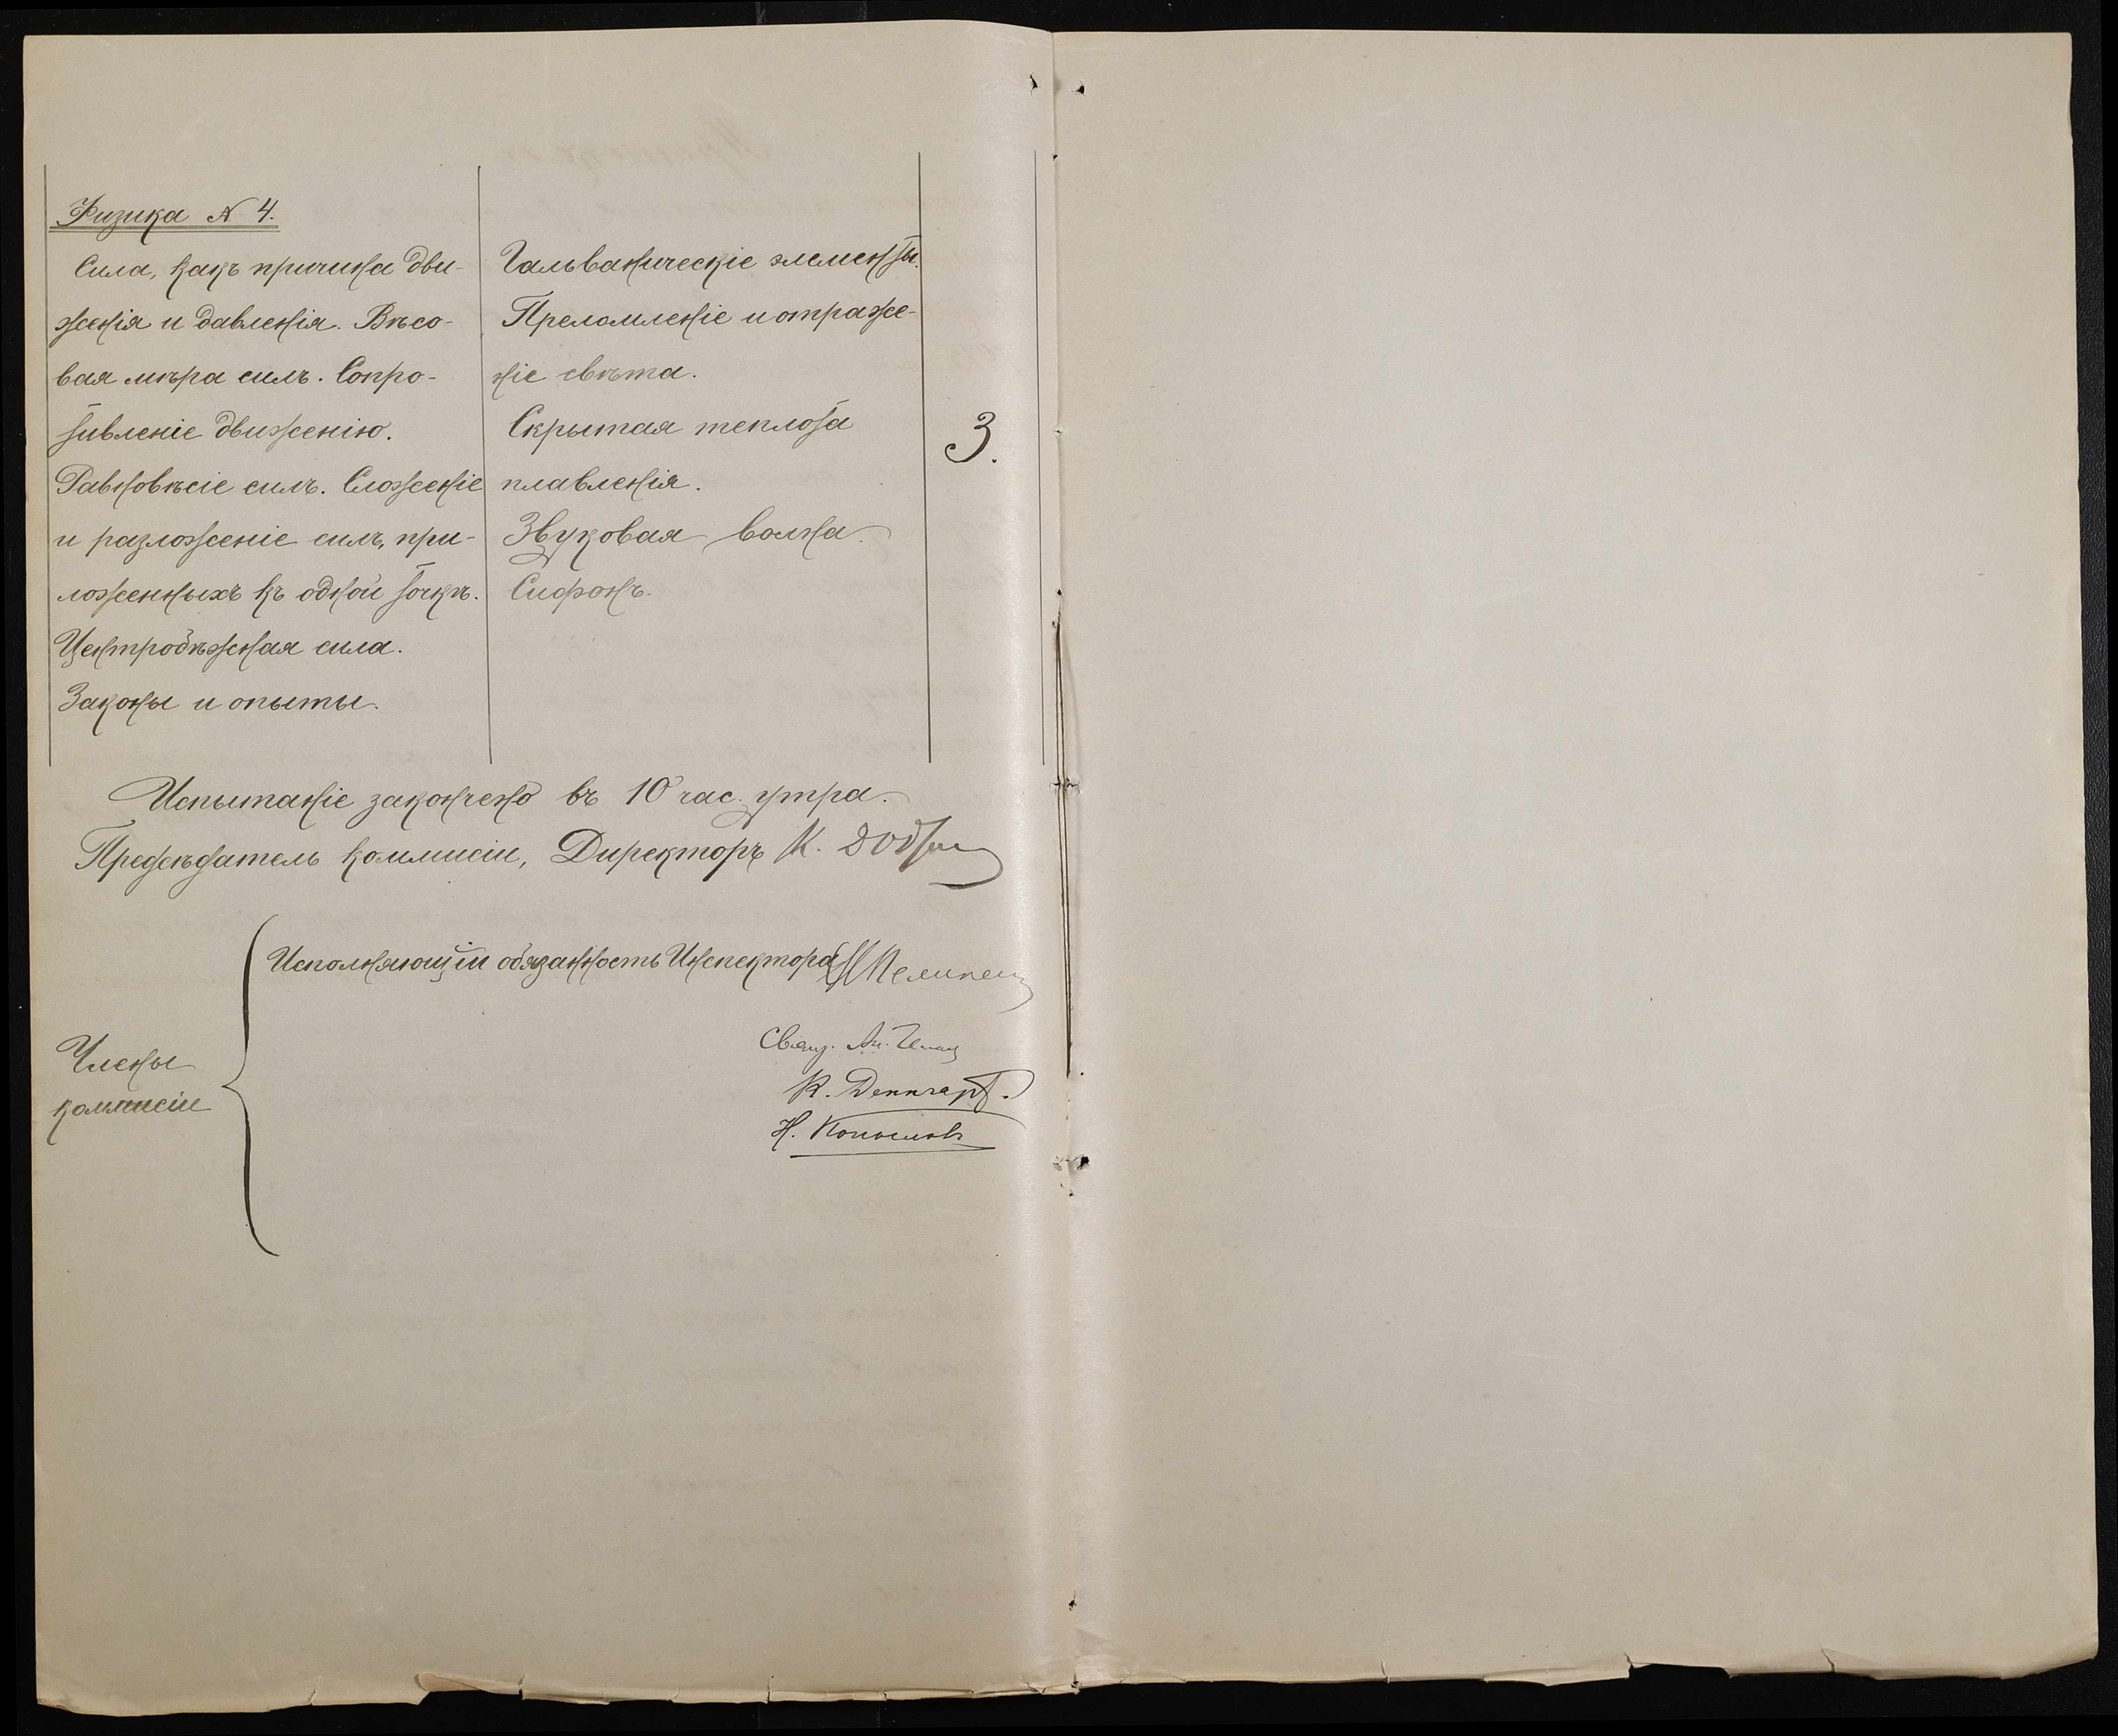 Физика № 4.
Сила, какъ причина дви-
женія и давленія. Вѣсо-
вая мѣра силъ. Сопро-
тивленіе движенію.
Равновѣсіе силъ. Сложеніе
и разложеніе силъ, при-
ложенныхъ къ одной точкѣ.
Центробѣжная сила.
Законы и опыты.
Гальваническіе элементы.
Преломленіе и отраже-
ніе свѣта.
Скрытая теплота
плавленія.
Звуковая волна.
Сифонъ.
3.
Испытаніе закончено въ 10 час. утра.
Предсѣдатель коммисіи, Директоръ К.
Исполняющій обязанность Инспектора
Члены
коммисіи
Свящ. Ан.
К.
Н.